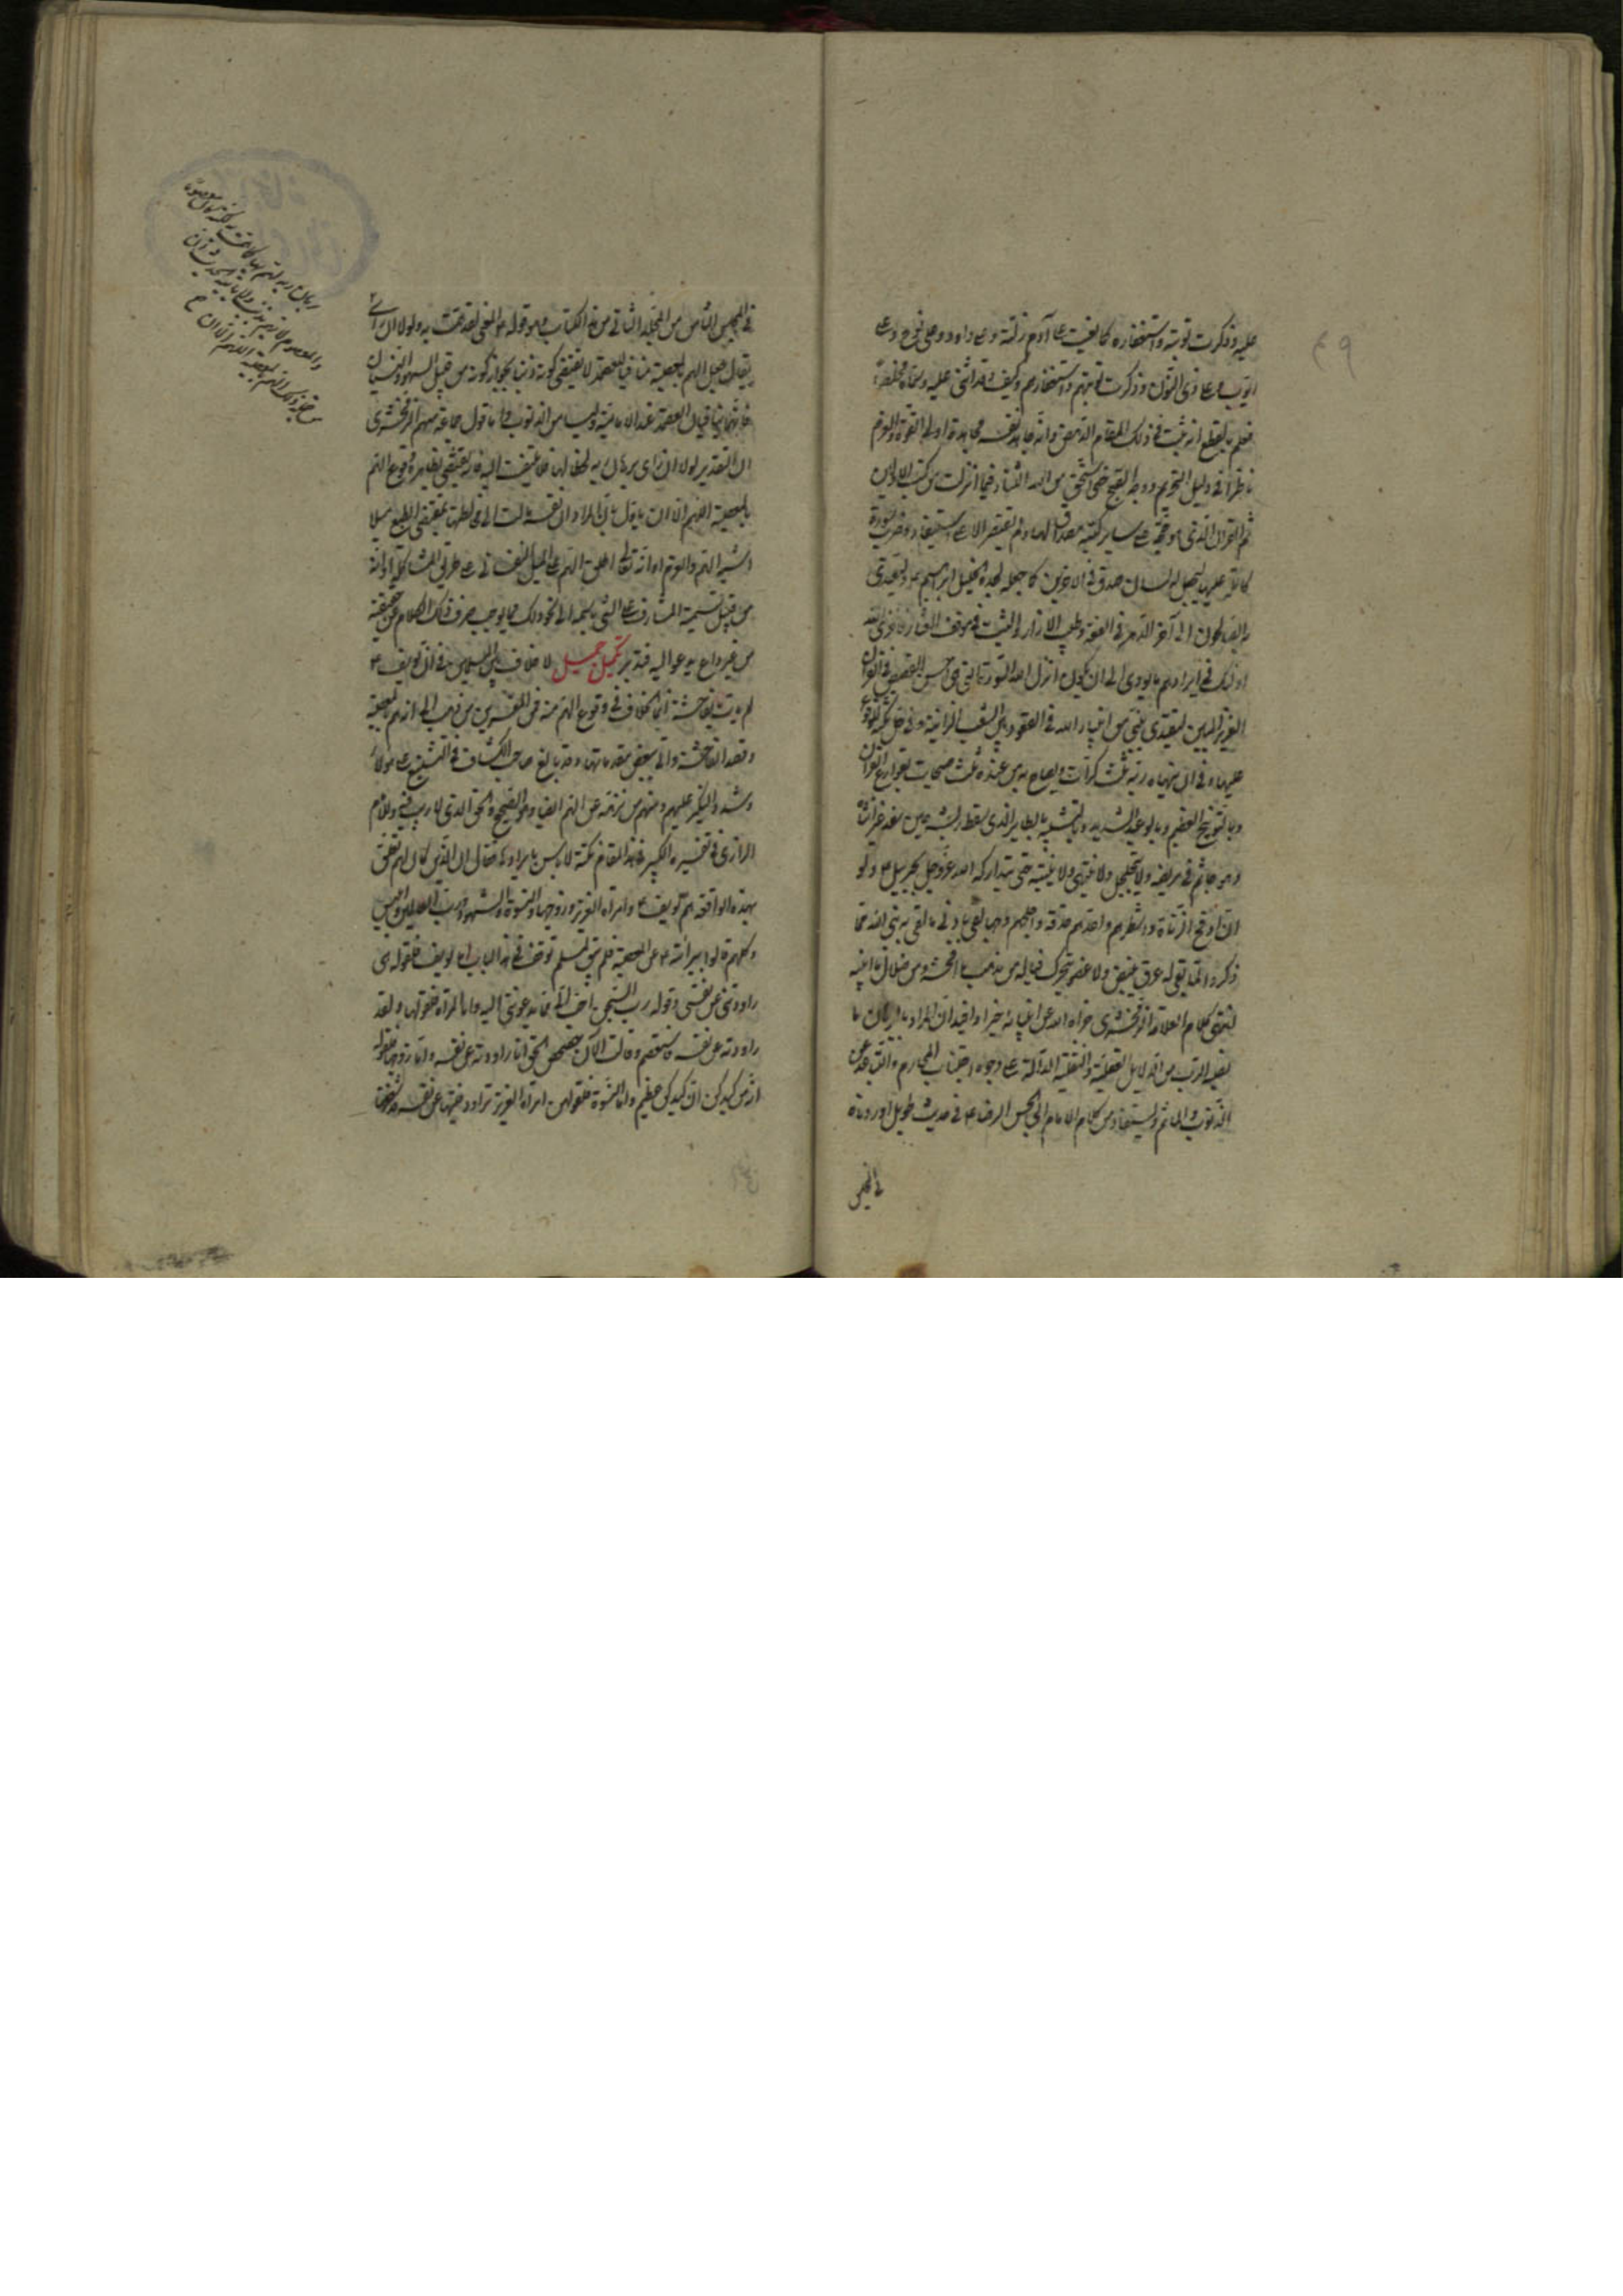 عليه وذكرت توبته واستغفاره كما نعيت على آدم زلته وعلى داود وعلى نوح وعلى
ايوب وعلى ذى النون وذكرت توبتهم واستغفارهم وكيف وقد اثنى عليه وسماه مخلصا
فعلم بالقطع انه ثبت فى ذلك المقام الدحض وانه جاهد نفسه مجاهدة اولى القوة والعزم
ناظرا فى دليل التحريم ووجه القبح حتى استحق من الله الثناء فيما انزلت من كتب الاولين
ثم القران الذى هو حجة على ساير كتبه مصداق لها ولم يقتصر الا على استيفاء وضرب سورة
كاملة عليها ليجعل له لسان صدق فى الاخرين كما جعله لجده الخليل ابراهيم ع وليقتدى
به الصالحون الى آخر الدهر فى العفة وطيب الازار والتثبت فى موقف العثار فاخزى الله
اولئك فى ايرادهم ما يؤدى الى ان يكون انزل الله السورة التى هى احسن القصص فى القرآن
العزيز المبين ليقتدى بنبى من انبياء الله فى القعود بين الشعب الزانية وفى حل تكته للوقوع
عليها وفى ان ينهاه ربه ثلث كرات ويصاح به من عنده ثلث صيحات بقوارع القرآن
وبالتوبيخ العظيم وبالوعيد الشديد وبالتشبيه بالطاير الذى سقط ريشه حين سفد غير انثاه
وهو جاثم فى مربضه ولا يتحلحل ولا ينتهى ولا ينتبه حتى يتداركه الله عز وجل بجبريل ع ولو
ان اوقح الزناة واشطرهم واحدهم حدقة واجلحهم وجها لقى بادنى ما لقى به نبى الله مما
ذكروا لما بقى له عرق ينبض ولا عضو يتحرك فيا له من مذهب ما افحشه ومن ضلال ما ابينه
انتهى كلام العلامة الزمخشرى جزاه الله عن انبيائه خيرا واقيد ان المراد بالبرهان ما
نصبه الرب من الدلايل العقلية والنقلية الدالة على وجوب اجتناب المحارم والتباعد عن
الذنوب والماثم ويستفاد من كلام الامام ابى الحسن الرضا ع فى حديث طويل اوردناه
فى المجلس
فى المجلس الثامن من المجلد الثانى من هذا الكتاب وهو قوله ع المعنى لقد همت به ولولا ان راى
يقال جعل الهم بالمعصية منافيا للعصمة لا يقتضى كونه ذنبا بجواز كونه من قبيل السهو والنسيان
فانهما ينافيان العصمة عند الامامية وليسا من الذنوب واما قول جماعة منهم الزمخشرى
ان التقدير لولا ان راى برهان ربه لخالطها فاليفت اليه فانه يقتضى بظاهره وقوع الهم
بالمعصية اللهم الا ان ياول بان المراد ان نفسه مالت الى مخالطتها بمقتضى الطبع ميلا
يشبه الهم والعزم او انه تعالى اطلق الهم على الميل النفسانى على طريق المشاكلة او انه
من قبيل تسمية المشارف على الشى باسمه الى نحو ذلك مما يوجب صرف ذلك الكلام عن حقيقته
من غير داع يدعو اليه فتدبر تكميل جميل لا خلاف بين المسلمين فى ان يوسف ع
لم يات بفاحشة انما الخلاف فى وقوع الهم منه فمن المفسرين من ذهب الى انه هم بالمعصية
وقصد الفاحشة واتى ببعض مقدماتها وقد بالغ صاحب الكشاف فى التشنيع على هولاء
وشدد النكير عليهم ومنهم من نزهه عن الهم ايضا وهو الصحيح والحق الذى لا ريب فيه وللامام
الرازى فى تفسيره الكبير فى هذا المقام نكتة لا باس بايرادها فقال ان الذين كان لهم تعلق
بهذه الواقعة هم يوسف ع وامراة العزيز وزوجها والنسوة والشهود ورب العالمين وابليس
وكلهم قالوا ببرائته ع عن المعصية فلم يبق لمسلم توقف فى هذا الباب اما يوسف فلقوله هى
راودتنى عن نفسى وقوله رب السجن احب الى مما يدعوننى اليه واما المراة فلقولها ولقد
راودته عن نفسه فاستعصم وقالت الآن حصحص الحق انا راودته عن نفسه واما زوجها فلقوله
انه من كيدكن ان كيدكن عظيم واما النسوة فلقولهن امراة العزيز تراود فتيها عن نفسه قد شغفها